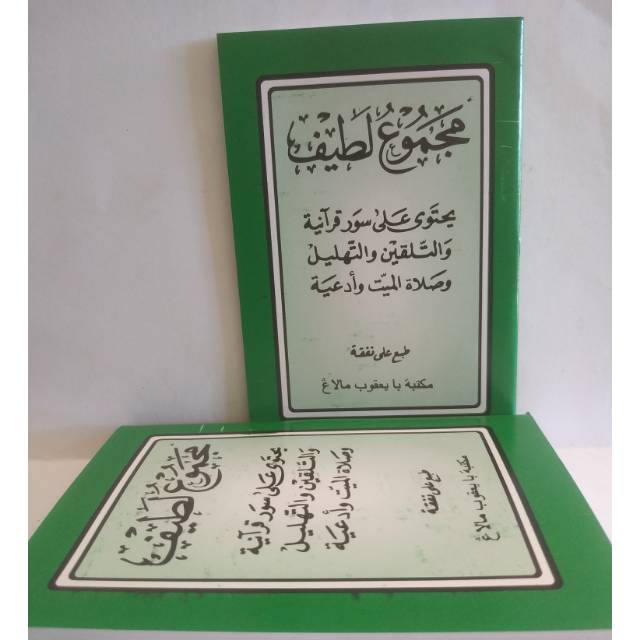 مَجْمُوعُ لَطِيفْ
يحتَوى عَلى سوَر قرآنية
وَالتّلقين والتّهليل
وصَلاة الميّت وأدعيَة
طبع على نفقة
مكتبة با يعقوب مالاڠ
مَجْمُوعُ لَطِيفْ
يحتَوى عَلى سوَر قرآنية
وَالتّلقين والتّهليل
وصَلاة الميّت وأدعيَة
طبع على نفقة
مكتبة با يعقوب مالاڠ